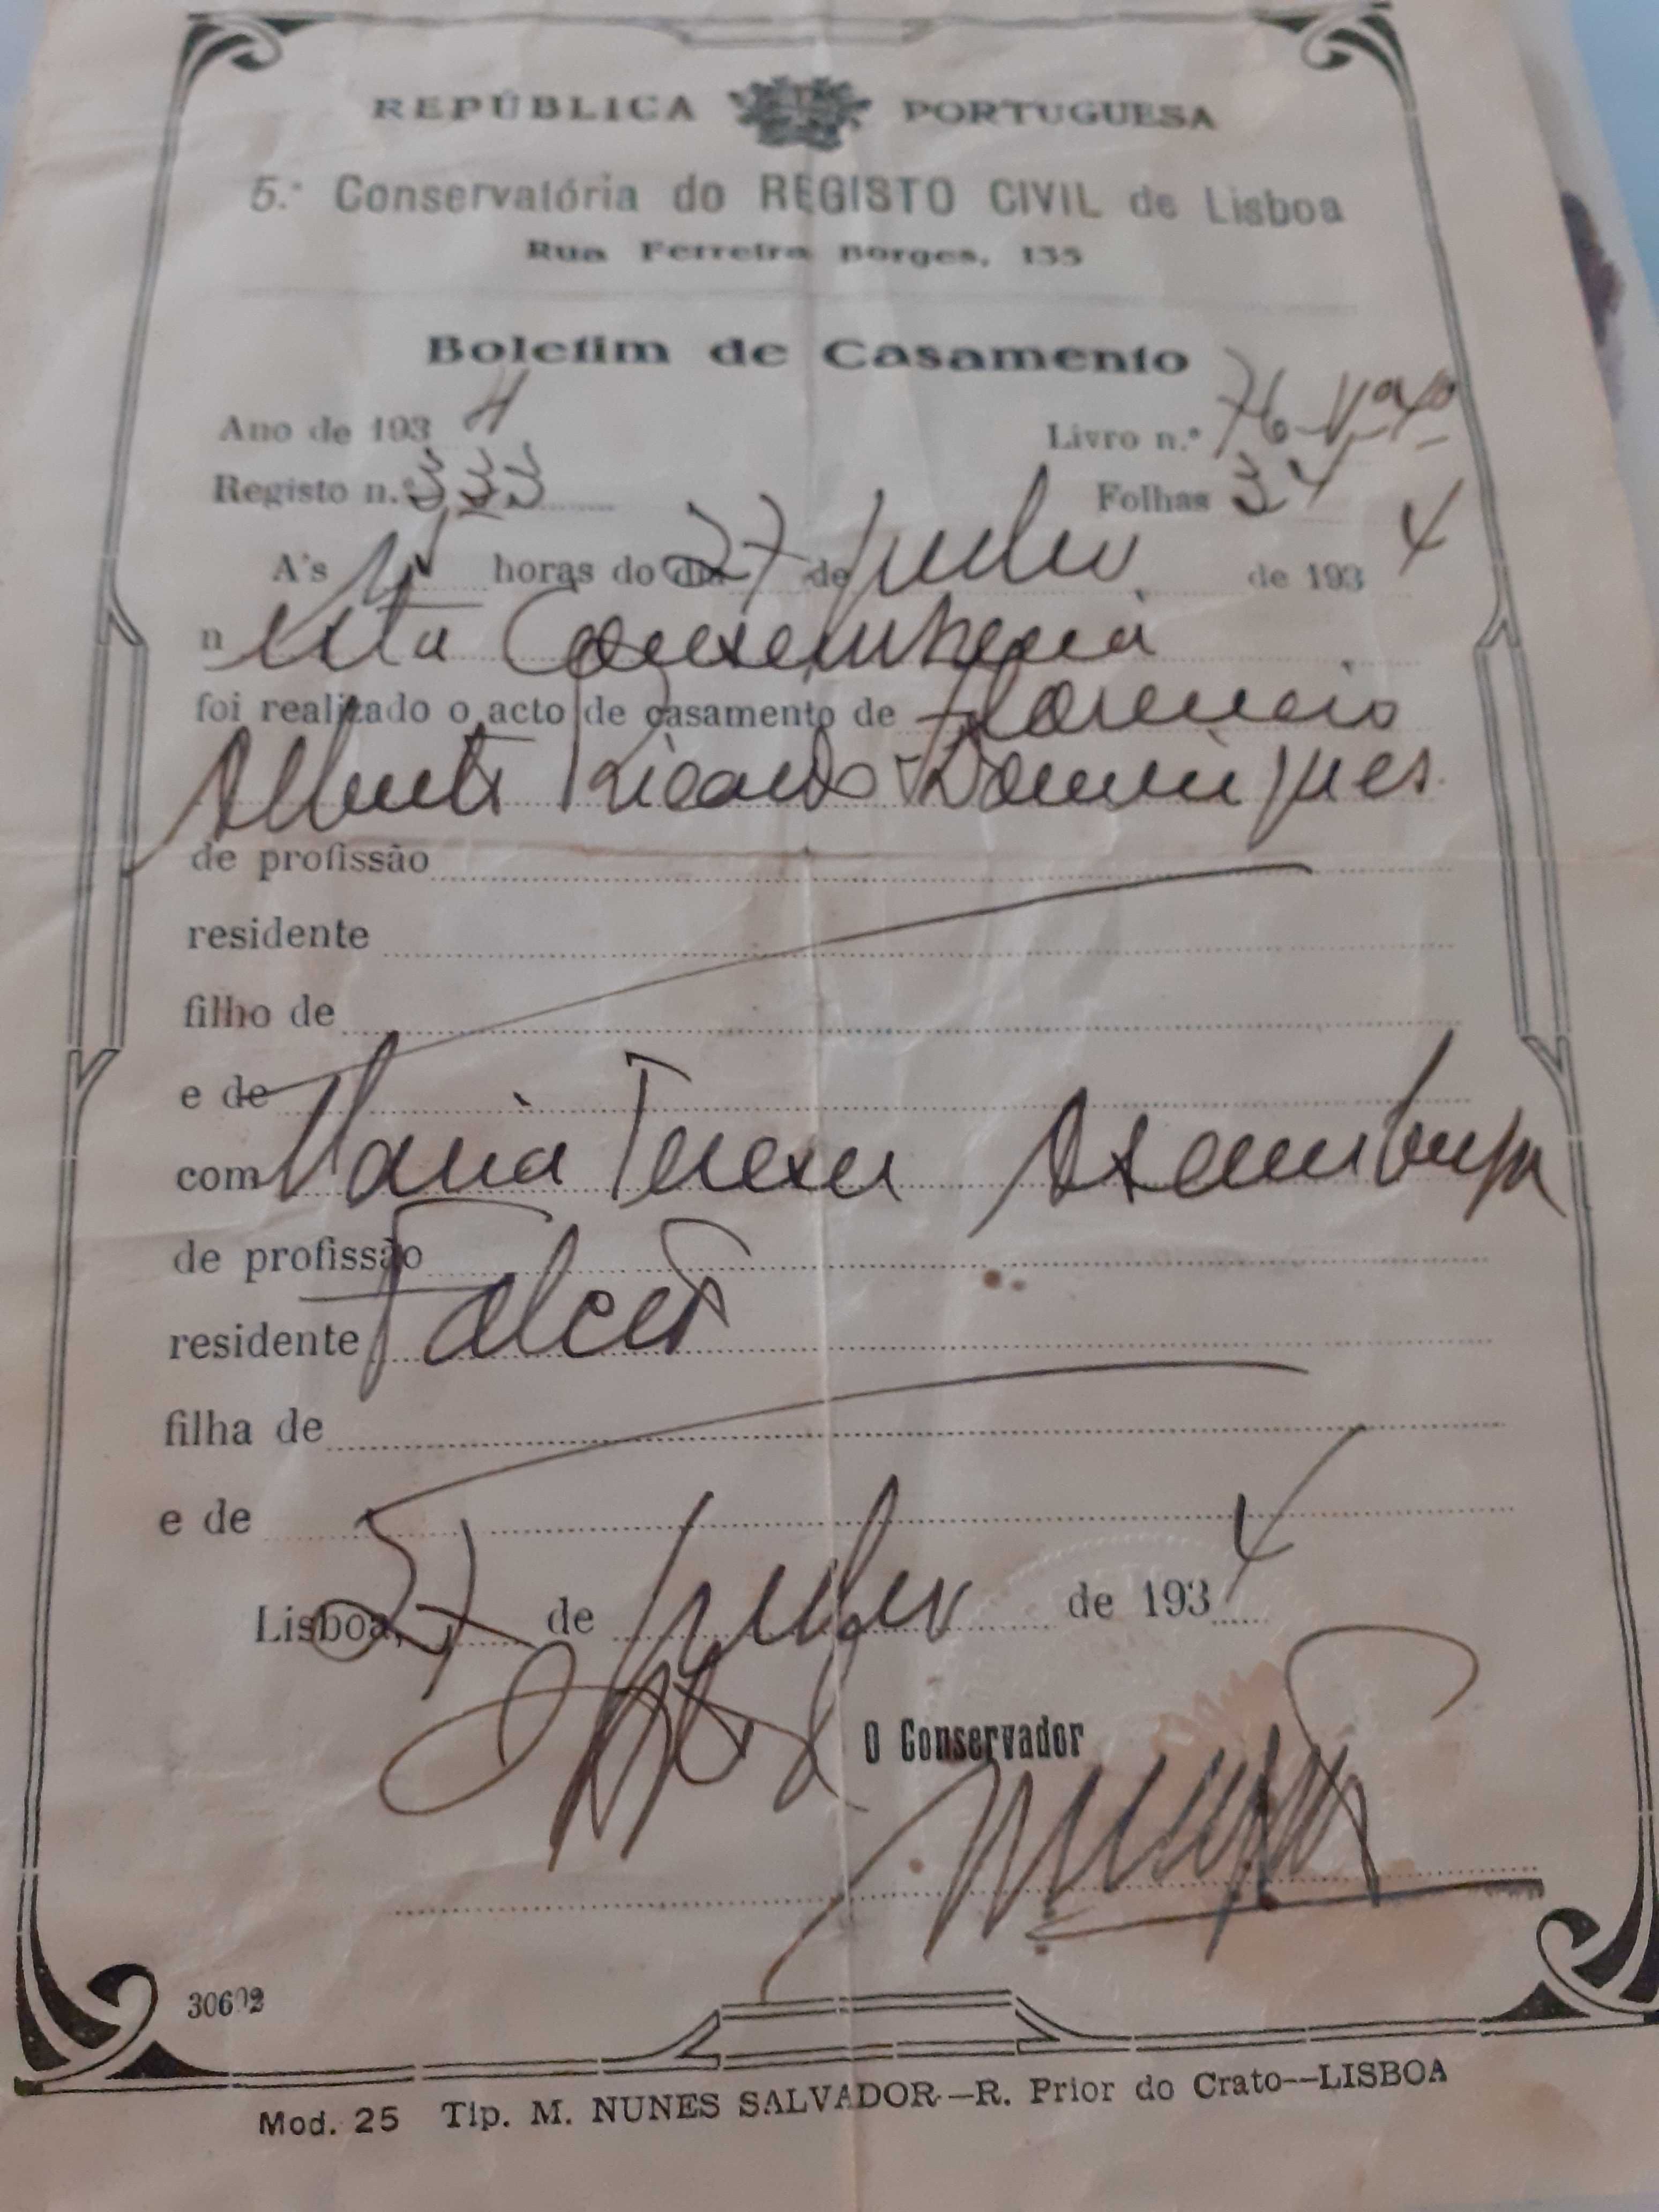 REPÚBLICA PORTUGUESA
5.ª Conservatória do REGISTO CIVIL de Lisboa
Rua Ferreira Borges, 135
Boletim de Casamento
Ano de 1934 Livro n.º 76
Registo n.º 333 Folhas 34
A's horas do dia 27 de Julho de 1934
nesta Conservatoria
foi realizado o acto de casamento de Florencio
Alberto Ricardo Domingues
de profissão
residente
filho de
e de
com Maria Tereza
de profissão
residente
filha de
e de
Lisboa, 27 de Julho de 1934
O Conservador
Mod. 25 Tip. M. NUNES SALVADOR—R. Prior do Crato—LISBOA